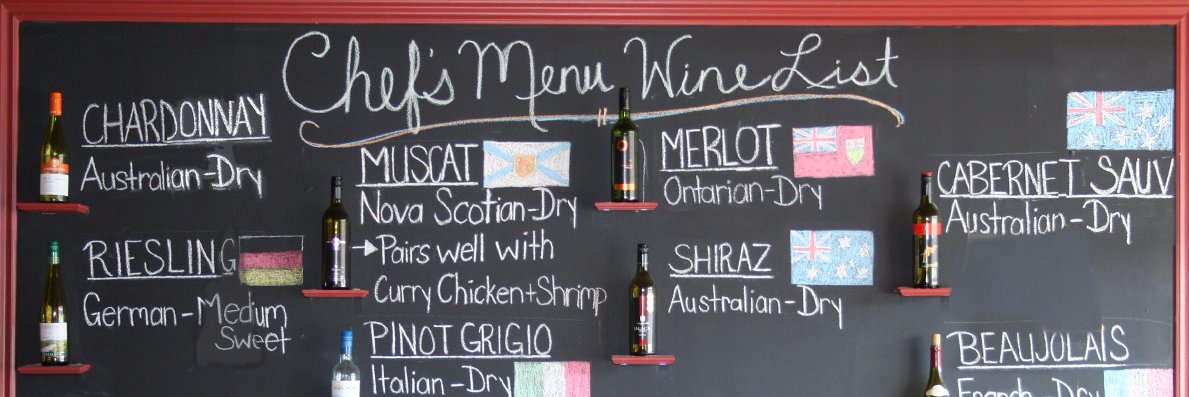 Chef's Menu Wine List
CHARDONNAY
Australian-Dry
RIESLING
German-Medum
Sweet
MUSCAT
Nova Scotian-Dry
→Pairs well with
Curry Chicken+Shrimp
PINOT GRIGIO
Italian-Dry
MERLOT
Ontarian-Dry
SHIRAZ
Australian-Dry
CABERNET SAUV
Australian-Dry
BEAUJOLAIS
French-Dry